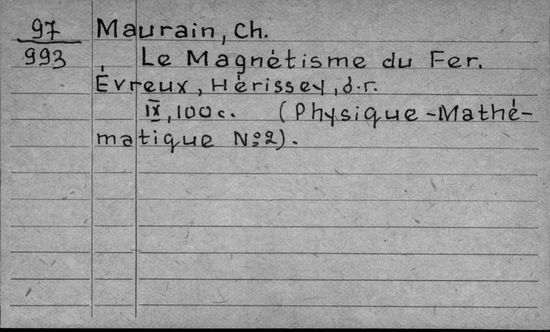 97 Maurain, Ch.
993 Le Magnétisme du Fer.
Évreux, Hérissey, d.r.
IX, 100 c. (Physique-Mathé-
matique №2).